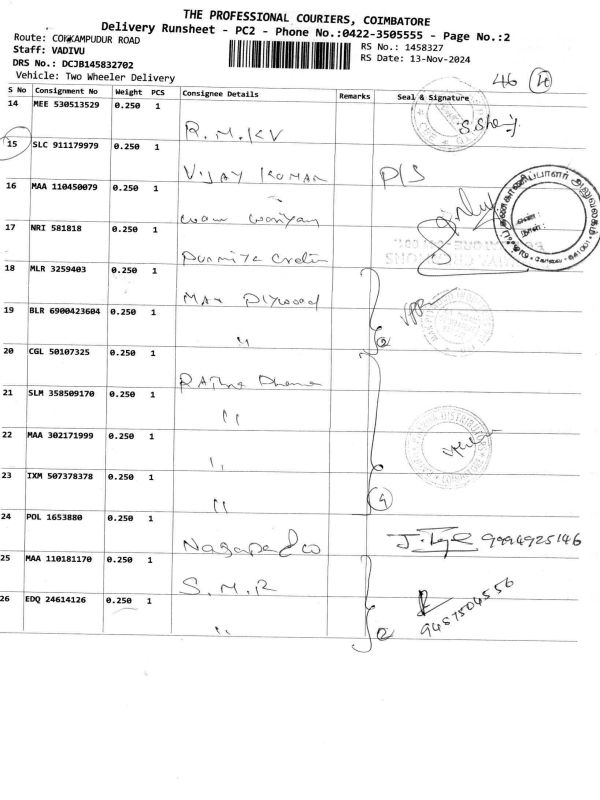 THE PROFESSIONAL COURIERS, COIMBATORE
Delivery Runsheet - PC2 - Phone No.:0422-3505555 - Page No.:2
Route: KAMPUDUR ROAD
Staff: VADIVU
RS No.: 1458327
RS Date: 13-Nov-2024
DRS No.: DCJB145832702
Vehicle: Two Wheeler Delivery
46 (4)
S No Consignment No Weight PCS Consignee Details Remarks Seal & Signature
14 MEE 530513529 0.250 1
R.M.KV
15 SLC 911179979 0.250 1
VIJAY KUMAR P/S
16 MAA 110450079 0.250 1
17 NRI 581818 0.250 1
18 MLR 3259403 0.250 1
Max Plywood
19 BLR 6900423604 0.250 1
" 2
20 CGL 50107325 0.250 1
21 SLM 358509170 0.250 1
"
22 MAA 302171999 0.250 1
"
23 IXM 507378378 0.250 1
" 4
24 POL 1653880 0.250 1
9994925146
25 MAA 110181170 0.250 1
S.M.R
26 EDQ 24614126 0.250 1
" 2 9487504556